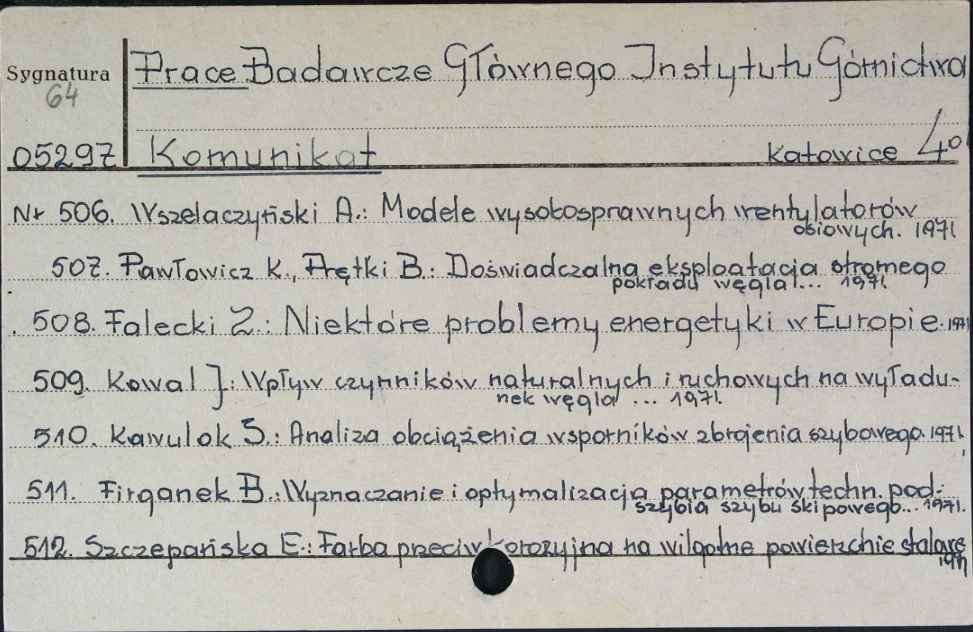 Prace Badawcze Głównego Instytutu Górnictwa
Sygnatura
64
05297 Komunikat Katowice 4º
Nr 506. Wszelaczyński A.: Modele wysokosprawnych wentylatorów
osiowych. 1971
507. Pawłowicz K., Prętki B.: Doświadczalna eksploatacja stromego
pokładu węgla... 1971
508. Falecki Z.: Niektóre problemy energetyki w Europie. 1971
509. Kowal J.: Wpływ czynników naturalnych i ruchowych na wyładu-
nek węgla ... 1971.
510. Kawulok S.: Analiza obciążenia wsporników zbrojenia szybowego. 1971
511. Firganek B.: Wyznaczanie i optymalizacja parametrów techn. pod-
szybia szybu skipowego... 1971.
512. Szczepańska E.: Farba przeciwkorozyjna na wilgotne powierzchnie stalowe
1971